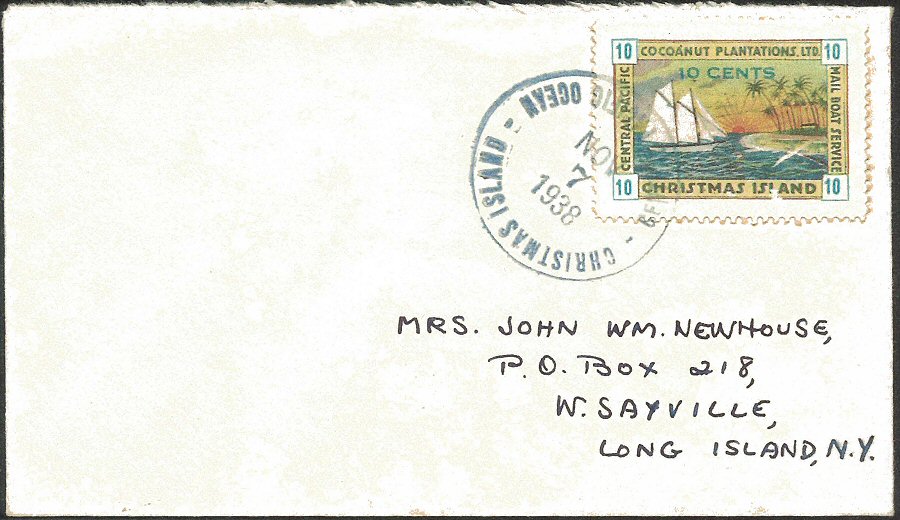 10 COCOANUT PLANTATIONS, LTD. 10
10 CENTS
CENTRAL PACIFIC
MAIL BOAT SERVICE
10 CHRISTMAS ISLAND 10
CHRISTMAS ISLAND - OCEAN
NOV
7
1938
MRS. JOHN WM. NEWHOUSE,
P.O. BOX 218,
W. SAYVILLE,
LONG ISLAND, N.Y.